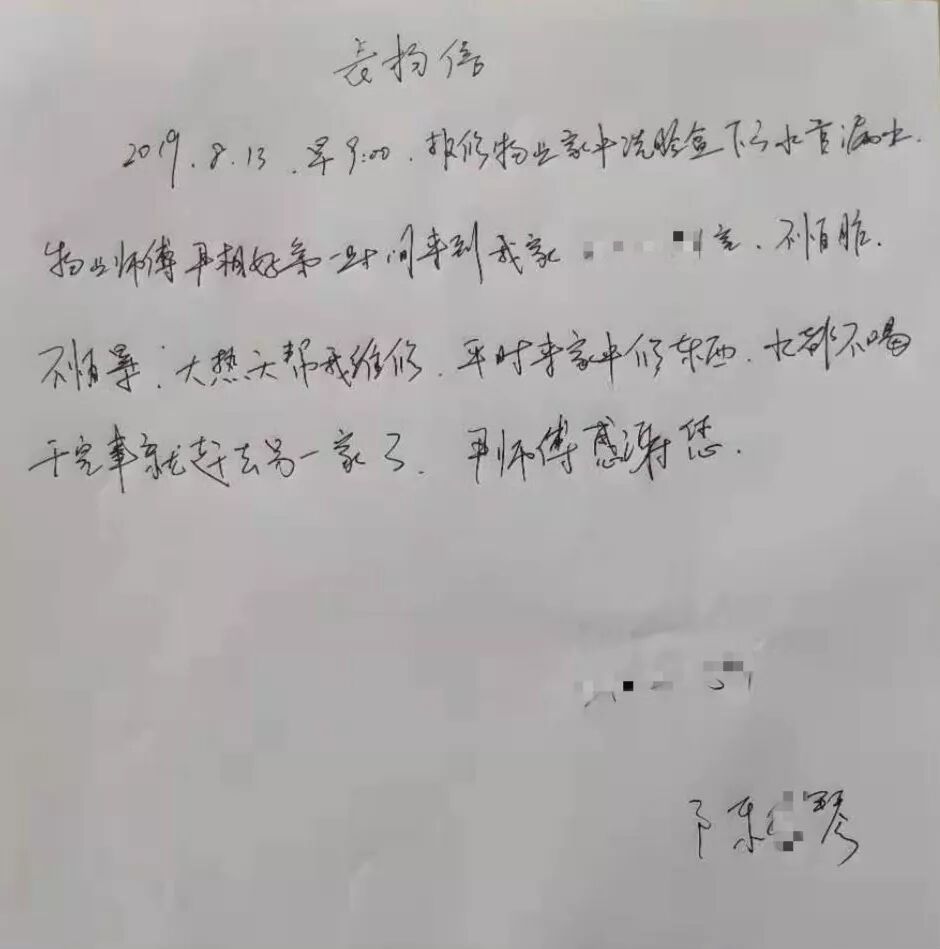 表扬信
2019.8.13.早9:00.报修物业家中洗脸盆下水管漏水.
物业师傅 第一时间来到我家 室.不怕脏.
不怕累.大热天帮我维修.平时来家中修东西.水都不喝
干完事就赶去另一家了. 师傅感谢您.
陈 琴